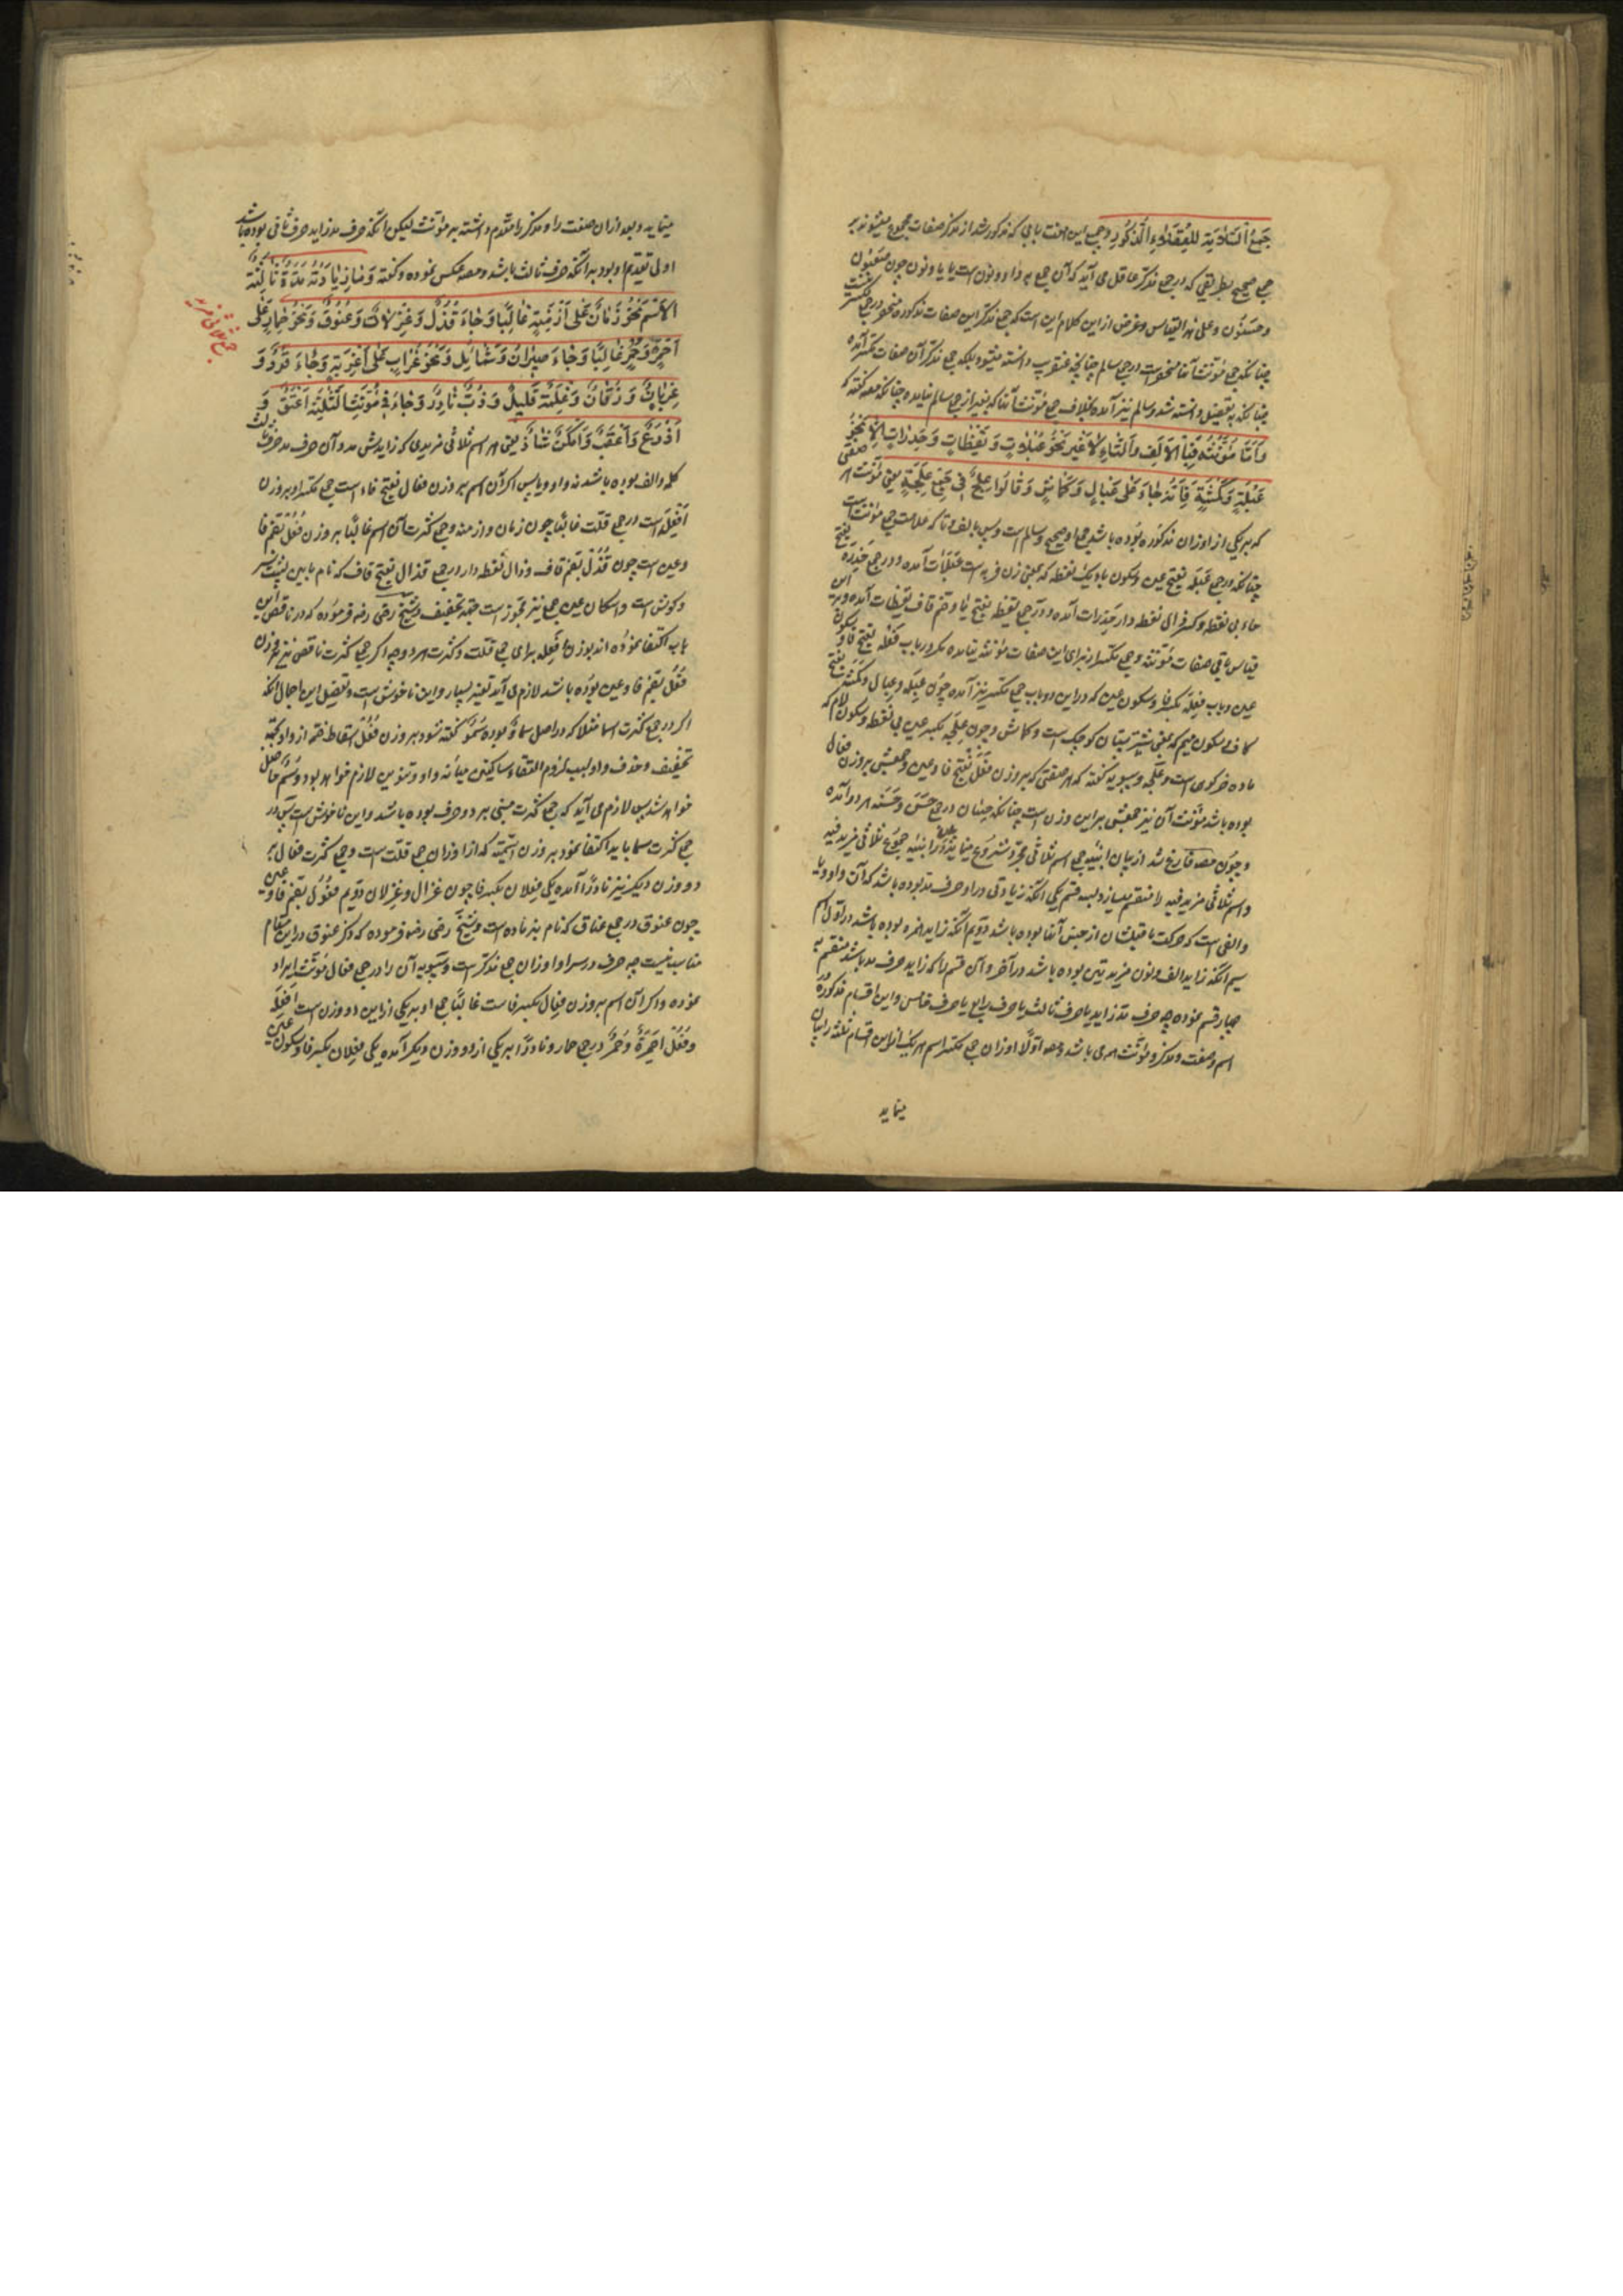 جَمعُ السَّلامَةِ لِلعُقَلاءِ الذُّكُورِ وجمع این هفت بابی که مذکور شد از مذکر صفات مجموع میشوند بر
جمع صحیح بطریقی که در جمع مذکر عاقل می آید که آن جمع به واو و نون است یا یا و نون چون صَعْبُون
وحَسَنُون وعلی هذا القیاس وغرض از این کلام این است که جمع مذکر این صفات مذکوره منحصر در جمع مکسر نیست
چنانکه جمع مؤنث آنها منحصر است در جمع سالم چنانچه عنقریب دانسته میشود بلکه جمع مذکر آن صفات مکسر آمده
چنانکه بتفصیل دانسته شد و سالم نیز آمده بخلاف جمع مؤنث آنها که بغیر از جمع سالم نیامده چنانکه مصه گفته که
وَاَمّا مُؤَنَّثُهُ فَبِالاَلِفِ وَالتّاءِ لاغَیر نَحوُ عَبْلاتٍ وَ یَقُظاتٍ وَ حَذِراتٍ اِلّا نَحْوُ
عَبْلَةٍ وَ کَمْشَةٍ فَاِنَّهُ جاءَ عَلی عِبالٍ وَ کِماشٍ وَ قالُوا عِلَجٌ فی جَمعِ عِلْجَةٍ یعنی مؤنث هر صفتی
که بر یکی از اوزان مذکوره بوده باشد جمع او صحیح و سالم است و بس بالف و تا که علامت جمع مؤنث است
چنانکه در جمع عَبْلَه بفتح عین و سکون با و یک نقطه که بمعنی زن فربه است عَبْلات آمده و در جمع حَذِرَه بفتح
حاء بی نقطه و کسر ذال نقطه دار حَذِرات آمده و در جمع یقظه بفتح یا و ضم قاف یَقُظات آمده و بر این
قیاس باقی صفات مؤنثه و جمع تکسیر از برای این صفات مؤنثه نیامده مگر در باب فَعْلَه بفتح فا و سکون
عین و باب فِعْلَه بکسر فا و سکون عین که در این دو باب جمع تکسیر نیز آمده چون عَبْلَه و عِبال و کَمْشَه بفتح
کاف و سکون میم که بمعنی شتر پستان کوچک است و کماش و چون عِلْجَه بکسر عین بی نقطه و سکون لام که
ماده خر کوهی است و عِلَج و سیبویه گفته که هر صفتی که بر وزن فَعَل بفتح فا و عین و جمعش بر وزن فعال
بوده باشد مؤنث آن نیز جمعش بر این وزن است چنانکه حِسان در جمع حَسَن و حَسَنه هر دو آمده
و چون مصه فارغ شد از بیان ابنیه جمع اسم ثلاثی مجرد شروع مینماید در ابنیه جموع ثلاثی مزید فیه
و اسم ثلاثی مزید فیه را منقسم میسازد بسه قسم یکی آنکه زیادتی در او حرف مد بوده باشد که آن واو و یا
و الفی است که حرکت ماقبلشان از جنس آنها بوده باشد دویم آنکه زاید همزه بوده باشد در اول اسم
سیم آنکه زاید الف و نون مزیدتین بوده باشد در آخر و آن قسم را که زاید حرف مد باشد منقسم به
چهار قسم نموده چه حرف مد زاید یا حرف ثالث یا حرف رابع یا حرف خامس و این اقسام مذکوره در
اسم و صفت و مذکر و مؤنث می باشد و مصه اولا اوزان جمع مکسر اسم هر یک از این اقسام ثلثه را بیان
مینماید
مینماید و بعد از ان صفت را و مذکر را مقدم داشته بر مؤنث لیکن آنکه حرف مد زاید حرف ثانی بوده باشد
اولی بتقدیم او بود بر آنکه حرف ثالث باشد و مصه عکس نموده و گفته وَما زِیادَتُهُ مَدَّةٌ ثالِثَةٌ
الاِسْم نَحْوُ زَمانٍ عَلی اَزْمِنَةٍ غالِبًا وَجاءَ قُذُلٌ وَغِزْلانٌ وَعُنُوقٌ وَنَحْوُ حِمارٍ عَلی
اَحْمِرَةٍ وَحُمُرٍ غالِبًا وَجاءَ صِیرانٌ وَشَمائِل وَنَحْوُ غُرابٍ عَلی اَغْرِبَةٍ وَجاءَ قُرُدٌ وَ
غِرْبانٌ وَ زُقّانٌ وَ غِلْمَةٌ قَلیلٌ وَ ذُبٌّ نادِرٌ وَ جاءَ فی مُؤَنَّثِ الثَّلثَةِ اَعْنُقٌ وَ
اَذْرُعٌ وَ اَعْقُبٌ وَ اَمْکُنٌ شاذٌّ یعنی هر اسم ثلاثی مزیدی که زایدش مد و آن حرف مد حرف ثالث
کلمه و الف بوده باشد نه واو و یا پس اگر آن اسم بر وزن فعال بفتح فاء است جمع مکسر او بر وزن
اَفْعِلَه است در جمع قلت غالبًا چون زمان و ازمنه و جمع کثرت آن اسم غالبًا بر وزن فُعُل بضم فا
و عین است چون قُذُل بضم قاف و ذال نقطه دار در جمع قذال بفتح قاف که نام مابین پشت سر
و گوش است و اسکان عین جمع نیز مجوز است بجهة تخفیف و شیخ رضی رضه فرموده که در ناقص این
باب اکتفا نموده اند بوزن اَفْعِلَه برای جمع قلت و کثرت هر دو چه اگر جمع کثرت ناقص نیز بر وزن
فُعُل بضم فا و عین بوده باشد لازم می آید تغییر بسیار و این ناخوش است و تفصیل این اجمال آنکه
اگر در جمع کثرت سما مثلا که در اصل سماوٌ بوده سُمُوٌ گفته شود بر وزن فُعُل اسقاط ضمه از واو بجهة
تخفیف و حذف واو بسبب لزوم التقاء ساکنین میانه واو و تنوین لازم خواهد بود و سُمٌ حاصل
خواهد شد پس لازم می آید که جمع کثرت مبنی بر دو حرف بوده باشد و این ناخوش است پس در
جمع کثرت سما باید اکتفا نمود بر وزن اسمیة که از اوزان جمع قلت است و جمع کثرت فعال بر
دو وزن دیگر نیز نادرًا آمده یکی فِعْلان بکسر فا چون غزال و غزلان دویم فُعُول بضم فا و عین
چون عنوق در جمع عناق که نام بز ماده است و شیخ رضی رضه فرموده که ذکر عنوق در این مقام
مناسب نیست چه حرف در سر او اوزان جمع مذکر است و سیبویه آن را در جمع فعال مؤنث ایراد
نموده و اگر آن اسم بر وزن فِعال بکسر فا است غالبًا جمع او بر یکی از این دو وزن است اَفْعِلَه
و فُعُل اَحْمِرَةٌ و حُمُرٌ در جمع حمار و نادرًا بر یکی از دو وزن دیگر آمده یکی فِعْلان بکسر فا و سکون عین
جمع ثلاثی مزید